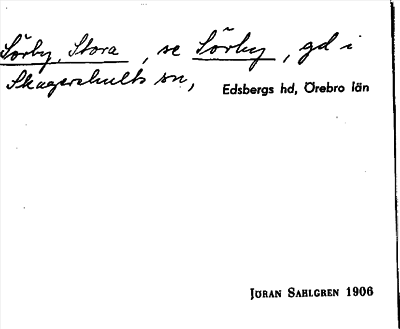 Sörby, Stora, se Sörby, gd i
Skagershults sn, Edsbergs hd, Örebro län
JÖRAN SAHLGREN 1906